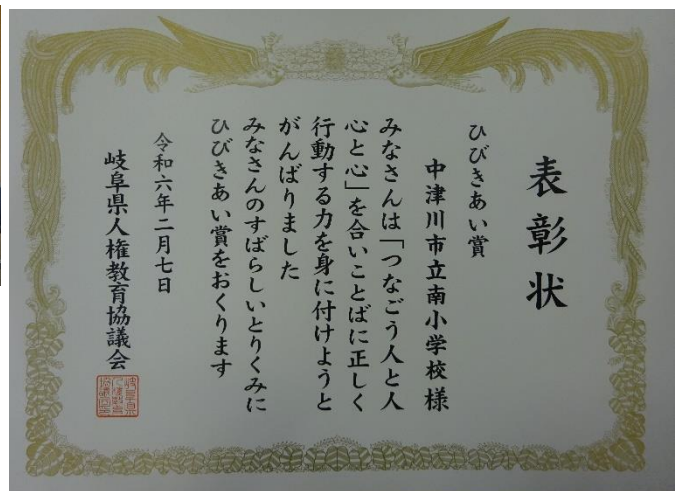 表彰状
ひびきあい賞
中津川市立南小学校様
みなさんは「つなごう人と人
心と心」を合いことばに正しく
行動する力を身に付けようと
がんばりました
みなさんのすばらしいとりくみに
ひびきあい賞をおくります
令和六年二月七日
岐阜県人権教育協議会